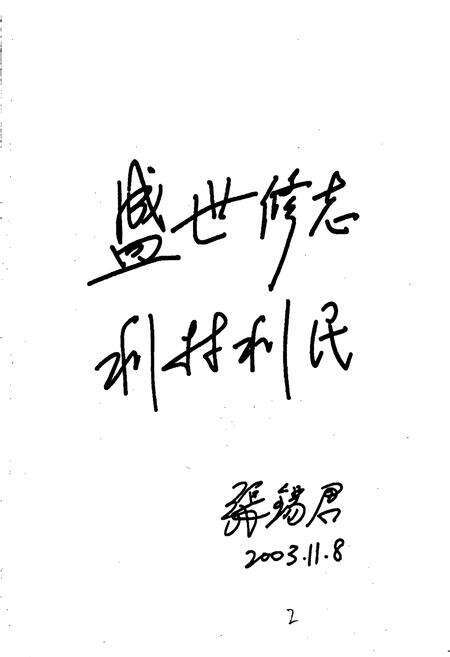 盛世修志
利村利民
張錫君
2003.11.8
2